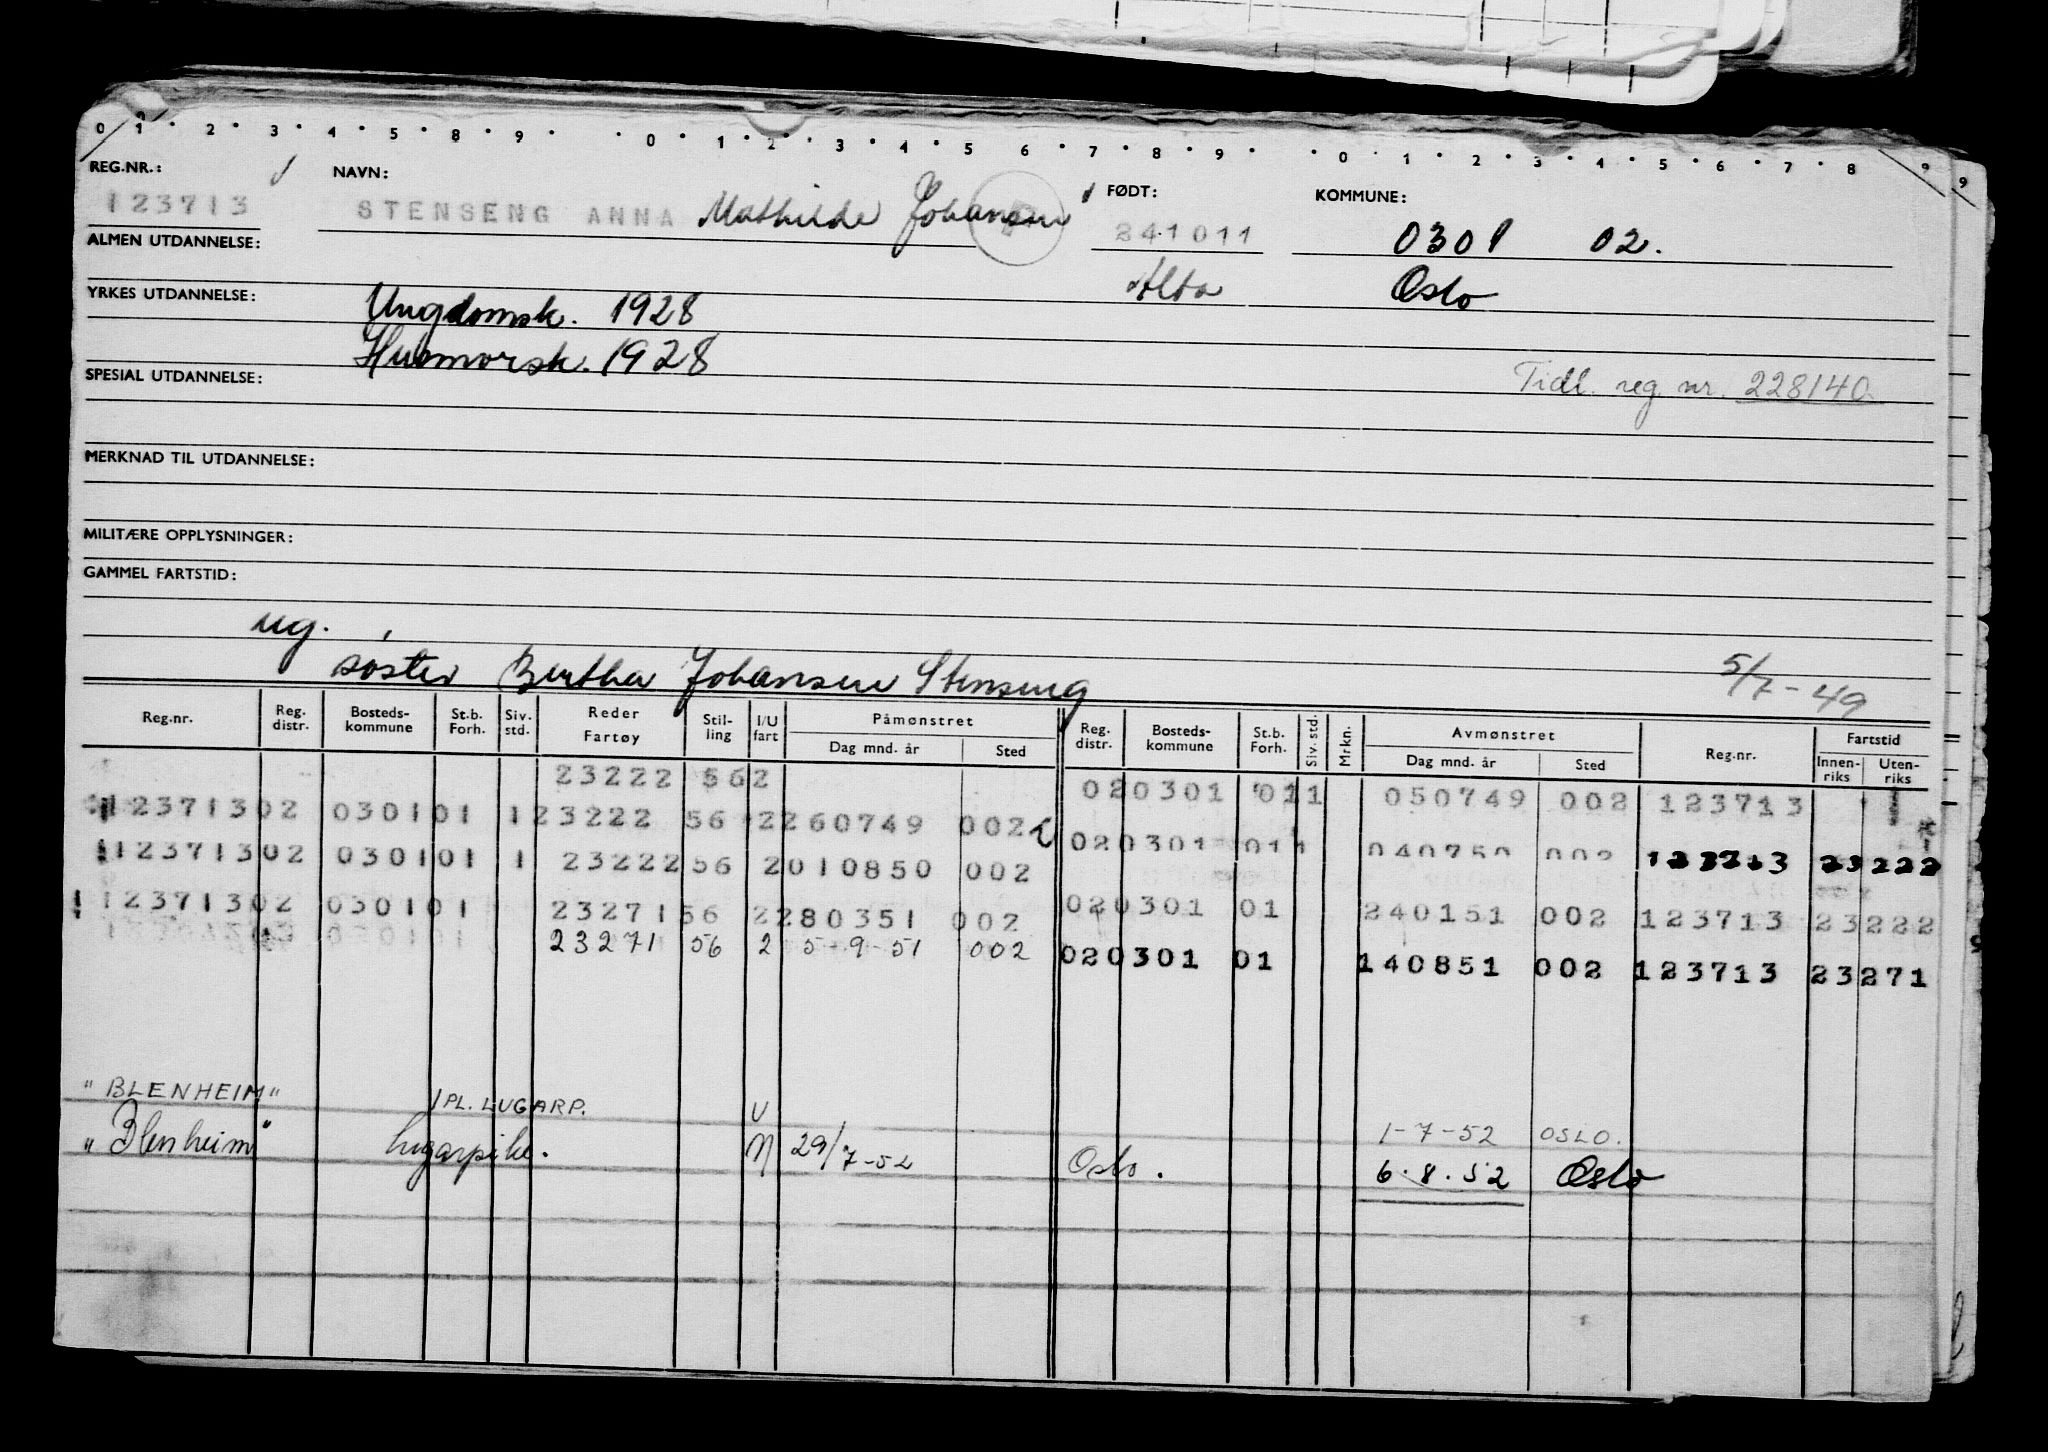 0 1 · 2 · 3 · 4 · 5 · 8 · 9 · · 0 · 1 · 2 · 3 · 4 · 5 · 6 · 7 · 8 · 9 · · 0 · 1 · 2 · 3 · 4 · 5 · 6 · 7 · 8 9 9
REG.NR.: NAVN: FØDT: KOMMUNE:
123713 STENSENG ANNA Mathilde Johansen 241011 0301 02.
ALMEN UTDANNELSE: Alta Oslo
YRKES UTDANNELSE: Ungdomsk. 1928
Husmorsk. 1928
SPESIAL UTDANNELSE: Tidl. reg. nr. 228140
MERKNAD TIL UTDANNELSE:
MILITÆRE OPPLYSNINGER:
GAMMEL FARTSTID:
ug.
søster Bertha Johansen Stenseng 5/7-49
Reg.nr. Reg. distr. Bosteds-kommune St.b. Forh. Siv. std. Reder Fartøy Stil-ling I/U fart Påmønstret Reg. distr. Bosteds-kommune St.b. Forh. Siv. std. Mrkn. Avmønstret Reg.nr. Fartstid
Dag mnd. år Sted Dag mnd. år Sted Innen-riks Uten-riks
23222 562 020301 011 050749 002 123713
12371302 030101 1 23222 56 2260749 002 020301 011 040750 002 123713 23222
12371302 030101 1 23222 56 2010850 002 020301 01 240151 002 123713 23222
12371302 030101 23271 56 2280351 002 020301 01 140851 002 123713 23271
23271 56 2 5-9-51 002
"BLENHEIM" 1 PL. LUGARP. U 1-7-52 OSLO.
"Blenheim" lugarpike. N 29/7-52 Oslo. 6.8.52 Oslo